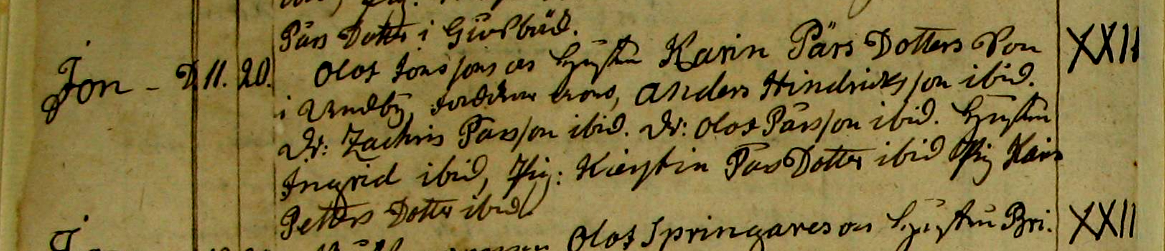 Pärs Dotter i
Jon - D. 11. 20. Olof Jonssons os Hustru Karin Pärs Dotters Son XXII
i Undby, Anders Hindricksson ibid.
Dr: Zachris Parsson ibid. Dr: Olof Pärsson ibid. Hustru
Ingrid ibid, Pig: Kierstin Pars Dotter ibid Pig Karin
Petters Dotter ibid
Olof Springares os Hustru Bri. XXII